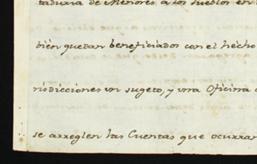 taduria de Menores, a los Pueblos en
bien quedan beneficiados con el hecho
risdicciones un sugeto, y una Oficina
se arreglen las Cuentas que ocurran